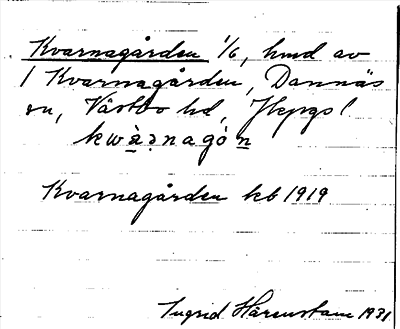 Kvarnagården 1/6, hmd av
1 Kvarnagården, Dannäs
sn, Västbo hd, Jkpgs l
kwàənagó̀n
Kvarnagården kb 1919
Ingrid Härenstam 1931